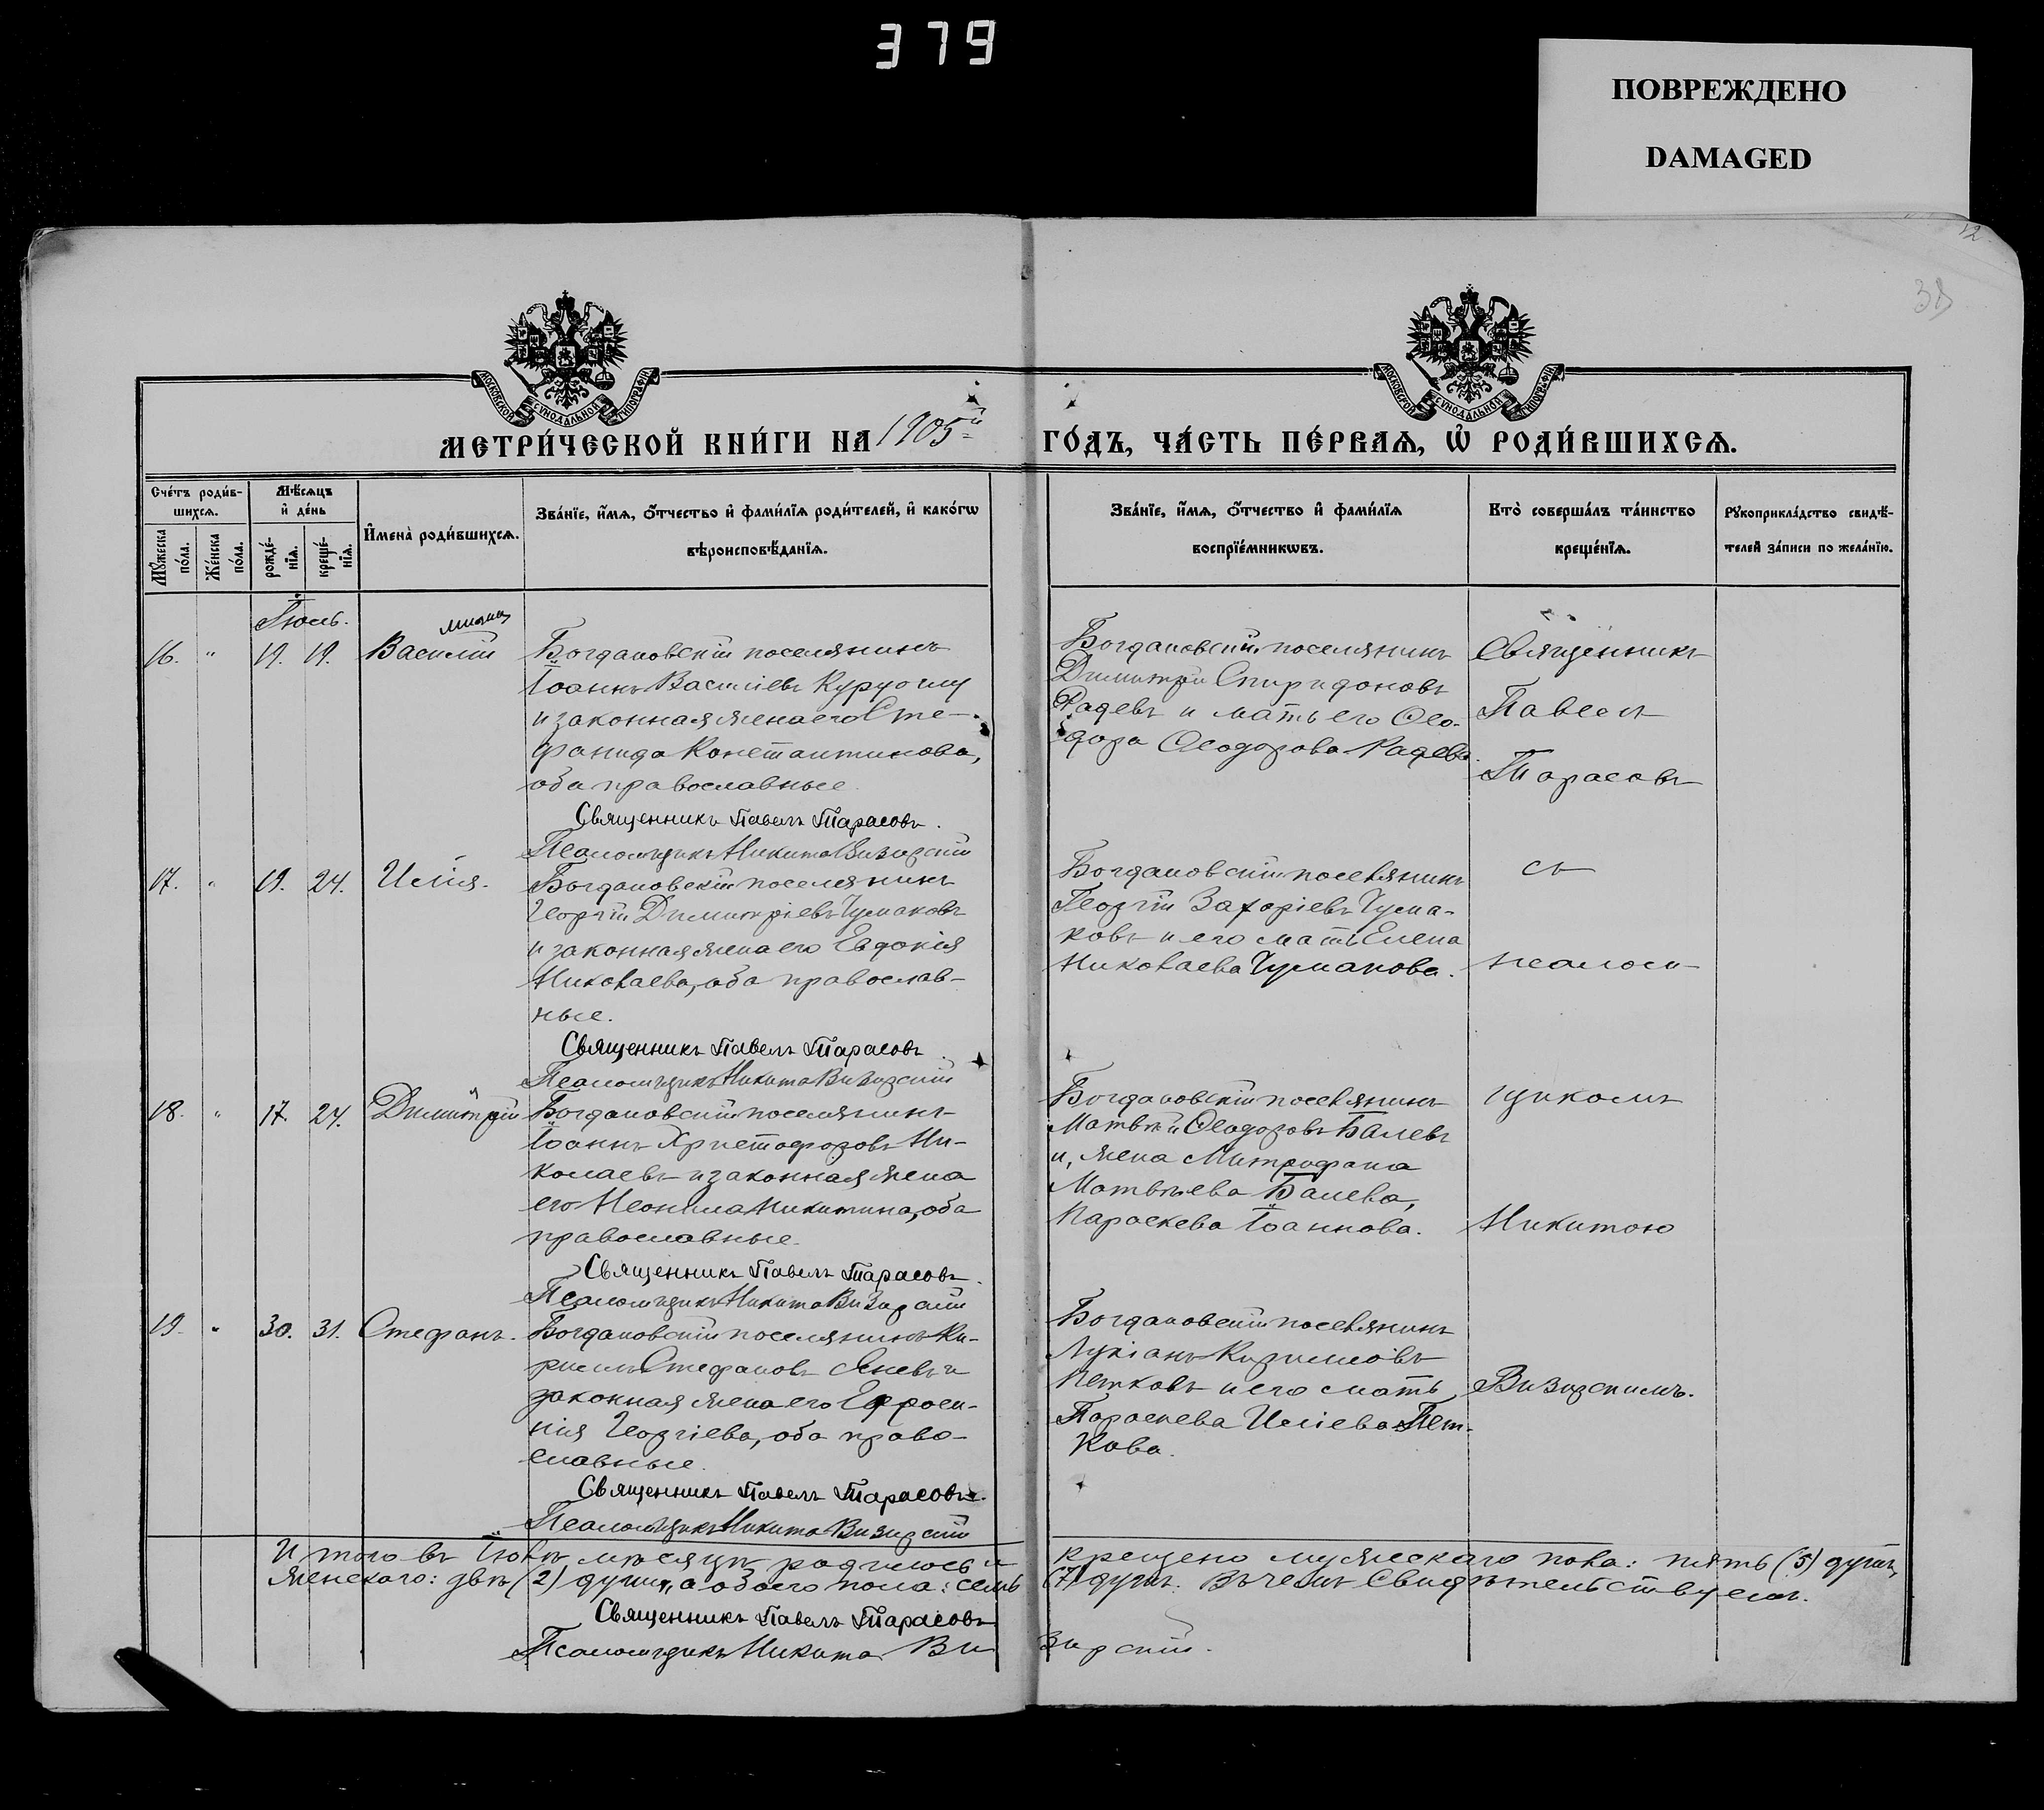 379
ПОВРЕЖДЕНО
DAMAGED
12
МОСКОВСКОЙ СУНОДАЛЬНОЙ ТИПОГРАФІИ
МОСКОВСКОЙ СУНОДАЛЬНОЙ ТИПОГРАФІИ
МЕТРИ́ЧЕСКОЙ КНИ́ГИ НА 1905й ГО́ДЪ, ЧА́СТЬ ПЕ́РВАѦ, Ѡ҆ РОДИ́ВШИХСѦ.
Сче́тъ роди́в-
шихсѧ.
Мꙋ́жеска по́ла.
Же́нска по́ла.
Мѣ́сѧцъ
и҆ де́нь
рожде́-
нїѧ.
креще́-
нїѧ.
И҆мена̀ роди́вшихсѧ.
Зва́нїе, и҆́мѧ, ѻ҆́тчество и҆ фами́лїѧ роди́телей, и҆ како́гѡ
вѣроисповѣ́данїѧ.
Зва́нїе, и҆́мѧ, ѻ҆́тчество и҆ фами́лїѧ
воспрїе́мникѡвъ.
Кто̀ соверша́лъ та́инство
креще́нїѧ.
Рꙋкоприкла́дство свидѣ́-
телей за́писи по жела́нїю.
Іюль.
16. " 19. 19. Василій
Богдановскій поселянинъ
Іоаннъ Васильевъ Куруоглу
и законная жена его Сте-
фанида Константинова,
оба православные.
Священникъ Павелъ Тарасовъ.
Псаломщикъ Никита Визирскій
Богдановскій поселянинъ
Димитрій Спиридоновъ
Радевъ и мать его Ѳео-
дора Ѳеодорова Радева.
Священникъ
Павелъ
Тарасовъ
17. " 19. 24. Илія.
Богдановскій поселянинъ
Георгій Димитріевъ Чумаковъ
и законная жена его Евдокія
Николаева, оба православ-
ные.
Священникъ Павелъ Тарасовъ.
Псаломщикъ Никита Визирскій
Богдановскій поселянинъ
Георгій Захаріевъ Чума-
ковъ и его мать Елена
Николаева Чумакова.
съ
псалом-
18. " 17. 24. Димитрій
Богдановскій поселянинъ
Іоаннъ Христофоровъ Ни-
колаевъ и законная жена
его Неонила Никитина, оба
православные.
Священникъ Павелъ Тарасовъ.
Псаломщикъ Никита Визирскій
Богдановскій поселянинъ
Матвѣй Ѳеодоровъ Балевъ
и, жена Митрофана
Матвѣева Балева,
Параскева Іоаннова.
щикомъ
Никитою
19. " 30. 31. Стефанъ.
Богдановскій поселянинъ Ки-
риллъ Стефановъ Яневъ и
законная жена его Ефроси-
нія Георгіева, оба право-
славные.
Священникъ Павелъ Тарасовъ.
Псаломщикъ Никита Визирскій
Богдановскій поселянинъ
Лукіанъ Кирилловъ
Петковъ и его мать
Параскева Иліева Пет-
кова.
Визирскимъ.
Итого въ Іюлѣ мѣсяцѣ родилось и крещено мужескаго пола: пять (5) душъ,
женскаго: двѣ (2) души, а обоего пола: семь (7) душъ. Въ чемъ свидѣтельствуемъ.
Священникъ Павелъ Тарасовъ
Псаломщикъ Никита Визирскій.